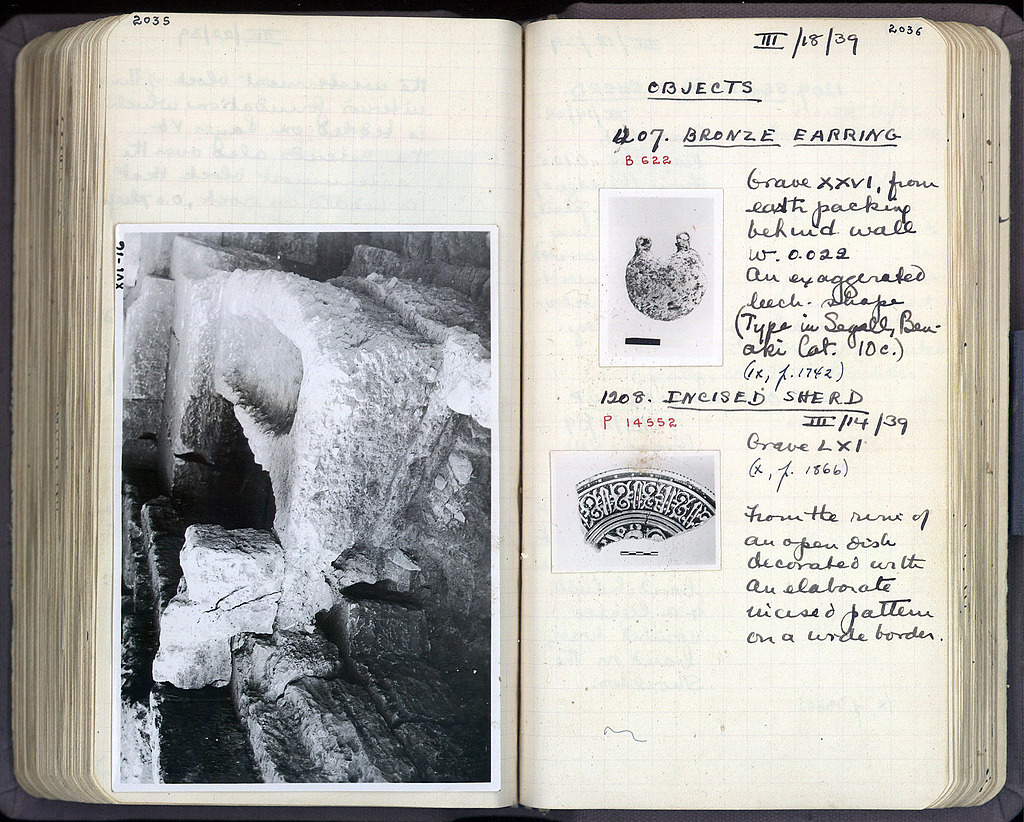 2035
XVI-16
2036
III/18/39
OBJECTS
1207. BRONZE EARRING
B 622
Grave XXVI, from
earth packing
behind wall
W. 0.022
An exaggerated
leech-shape
(Type in Segall, Ben-
aki Cat. 10c.)
(IX, p. 1742)
1208. INCISED SHERD
P 14552
III/14/39
Grave LXI
(X, p. 1866)
From the rim of
an open dish
decorated with
an elaborate
incised pattern
on a wide border.